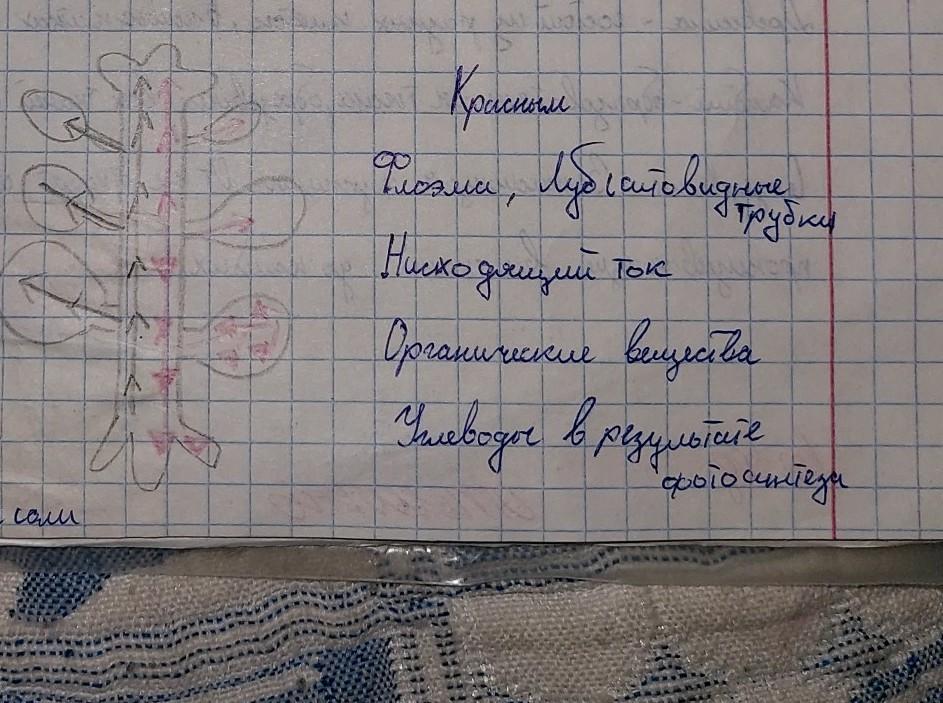 Красным
Флоэма, Луб (ситовидные
трубки
Нисходящий ток
Органические вещества
Углеводы в результате
фотосинтеза
соли